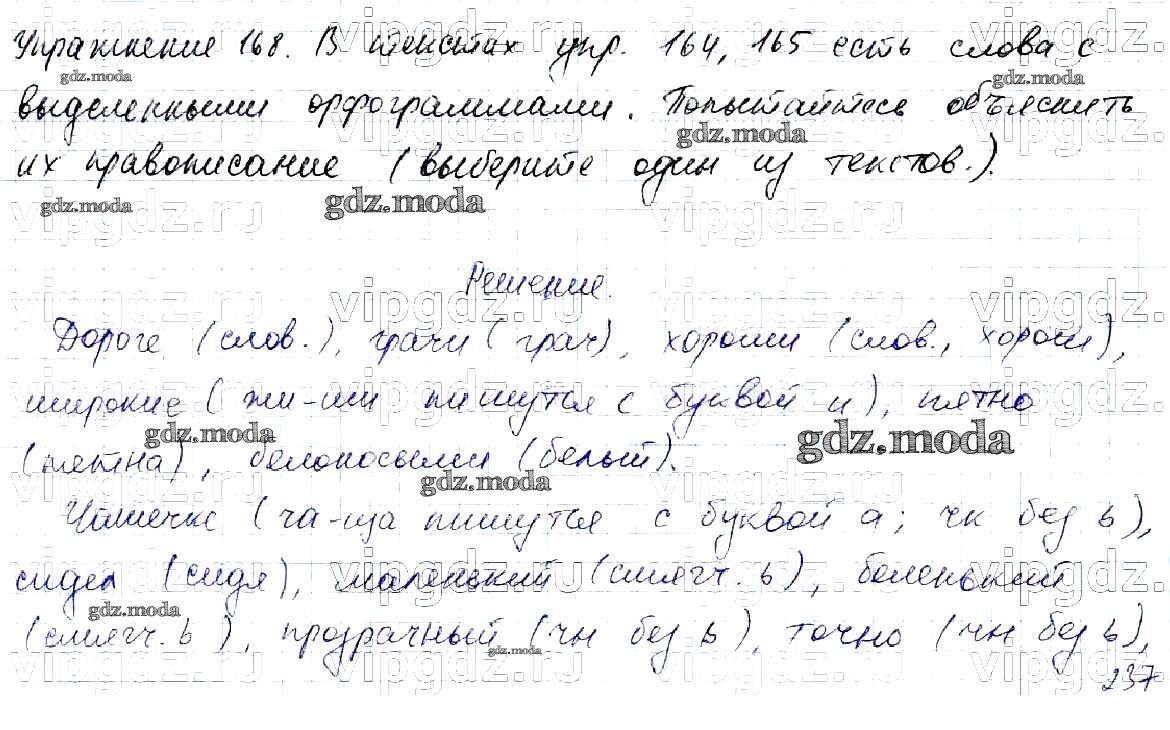 Упражнение 168. В текстах упр. 164, 165 есть слова с
выделенными орфограммами. Попытайтесь объяснить
их правописание (выберите один из текстов.).
Решение.
Дороге (слов.), грачи (грач), хороши (слов., хорош),
широкие (жи-ши пишутся с буквой и), пятно
(пятна), белоносыми (белый).
Чашечке (ча-ща пишутся с буквой а; чк без ь),
сидел (сидя), маленький (смягч. ь), беленький
(смягч. ь), прозрачный (чн без ь), точно (чн без ь),
237